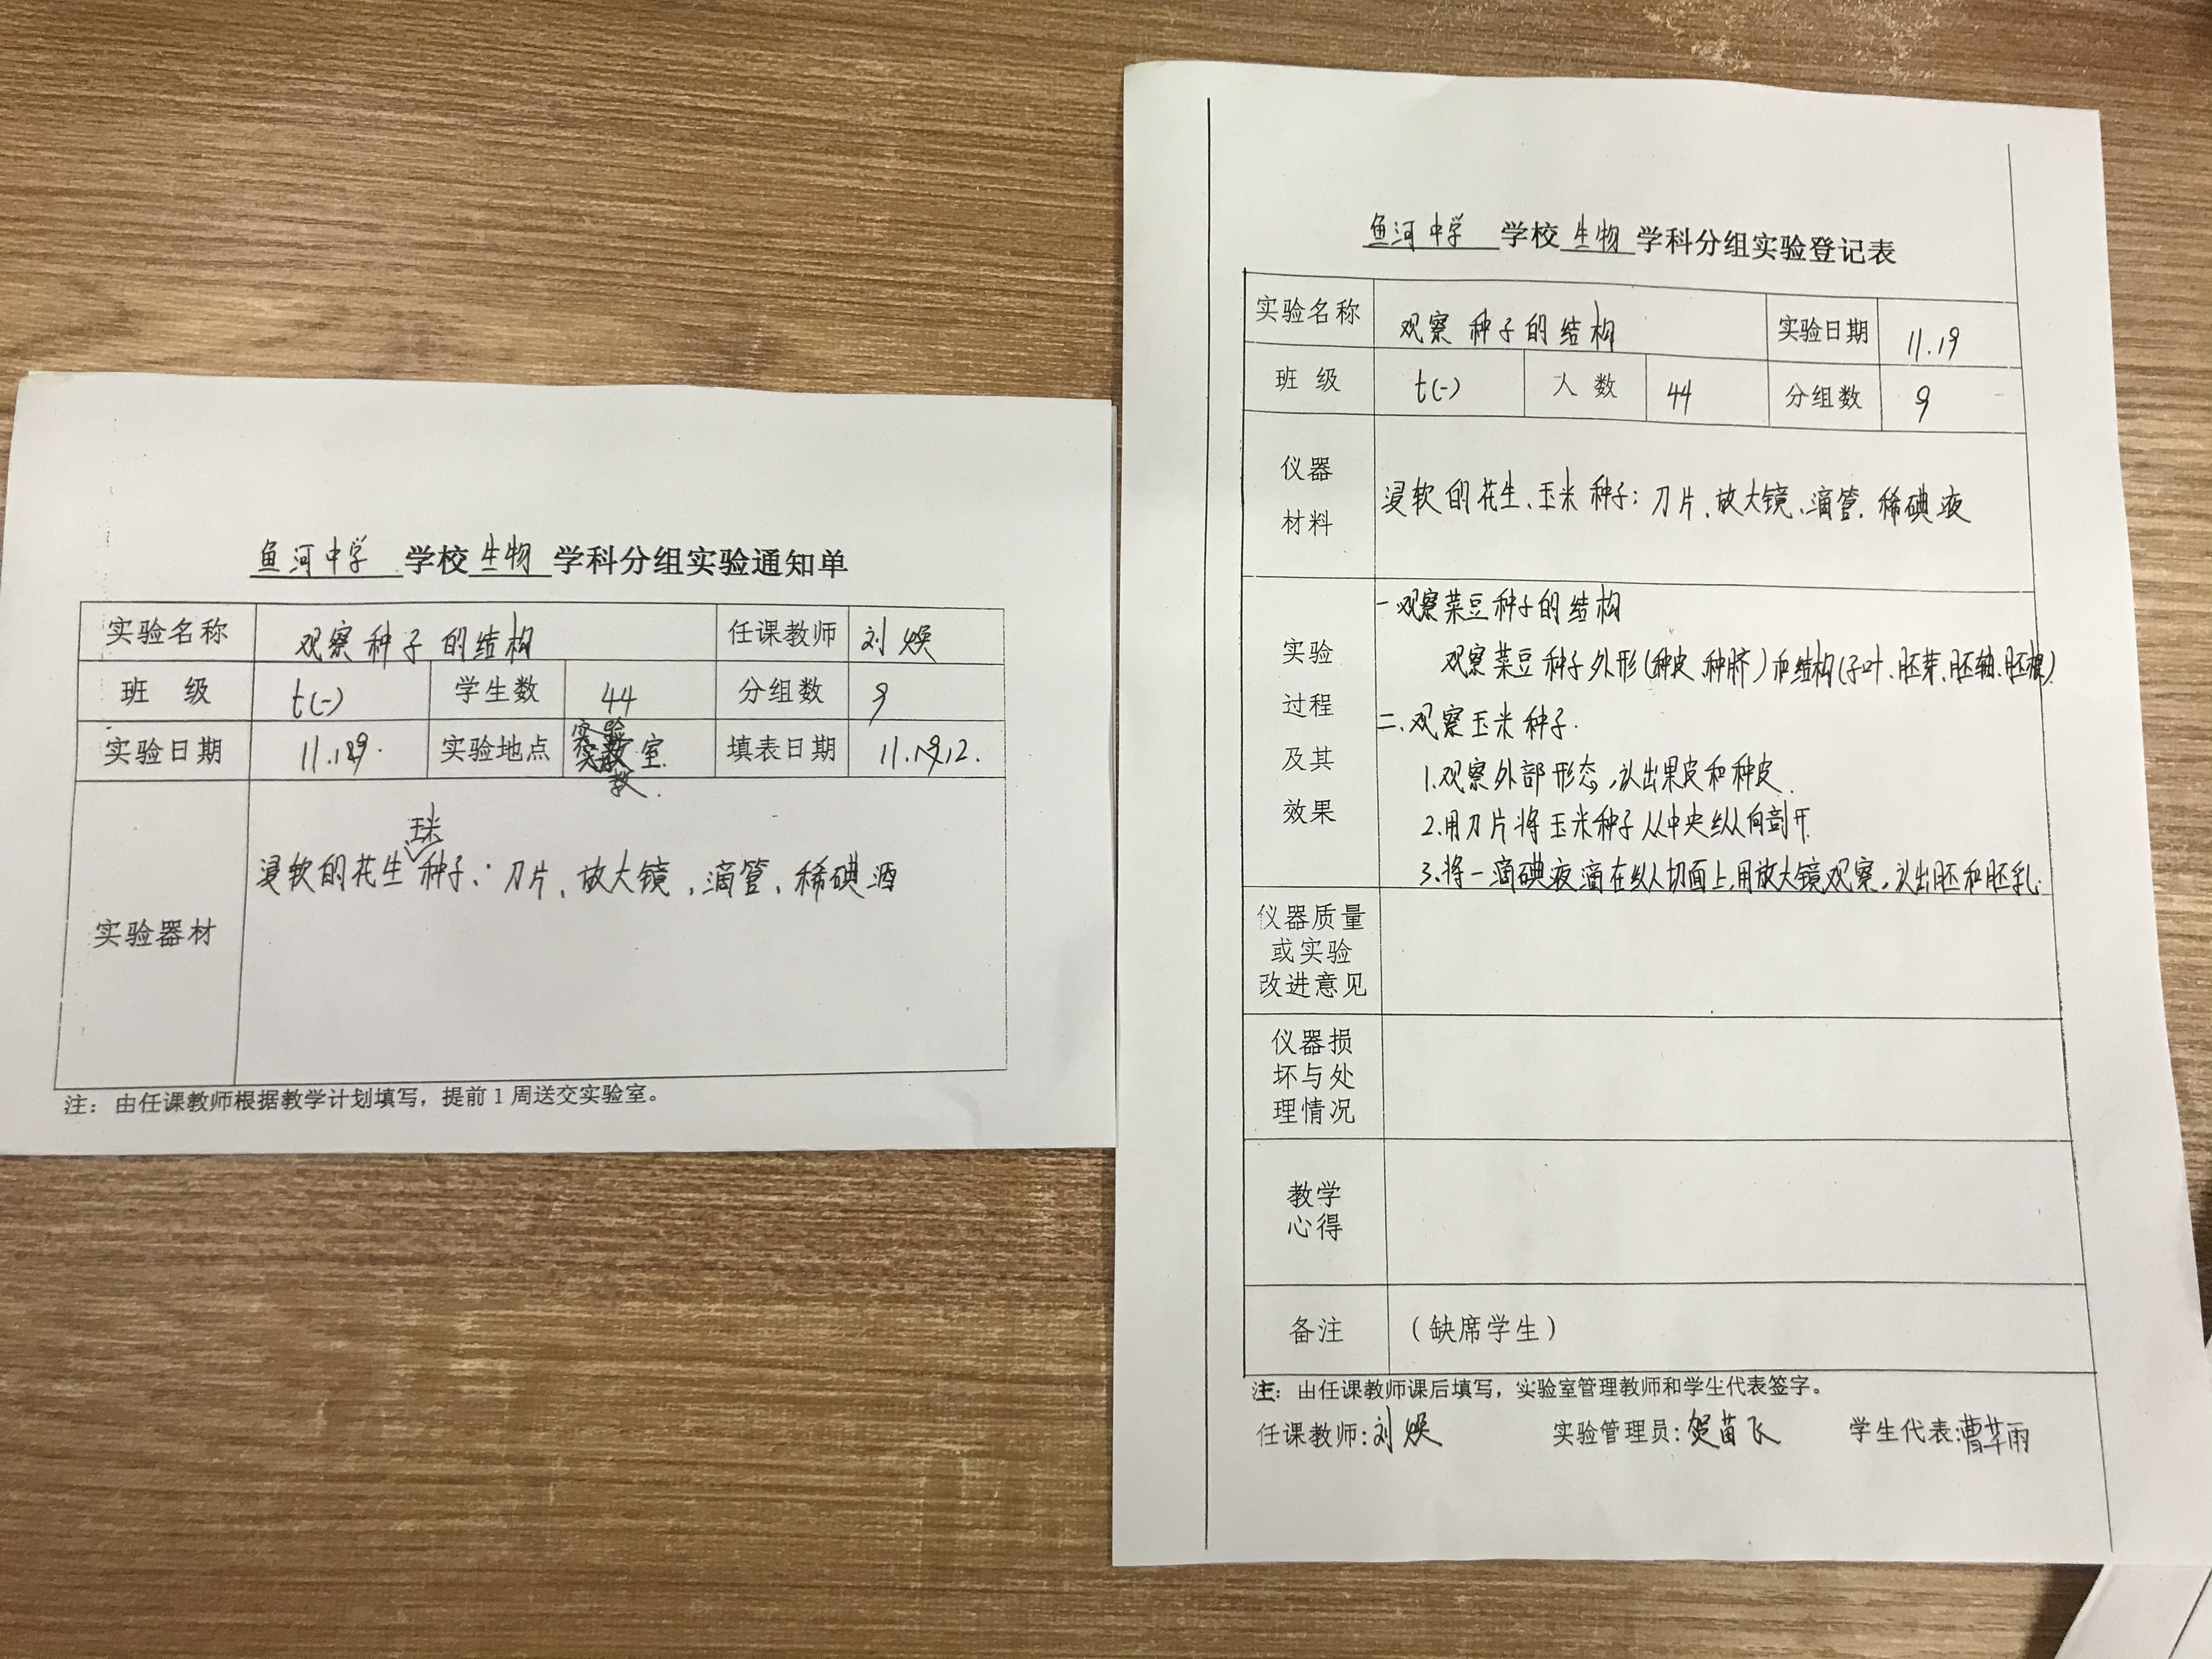 鱼河中学 学校 生物 学科分组实验通知单
实验名称 观察种子的结构 任课教师 刘焕
班 级 七(一) 学生数 44 分组数 9
实验日期 实验地点 室 填表日期
玉米
浸软的花生种子:刀片、放大镜,滴管、稀碘酒
实验器材
注:由任课教师根据教学计划填写,提前1周送交实验室。
鱼河中学 学校 生物 学科分组实验登记表
实验名称 观察种子的结构 实验日期 11.19
班 级 七(一) 人 数 44 分组数 9
仪器
材料
浸软的花生、玉米种子:刀片、放大镜、滴管.稀碘液
实验
过程
及其
效果
一观察菜豆种子的结构
观察菜豆种子外形(种皮、种脐)和结构(子叶、胚芽、胚轴、胚根).
二.观察玉米种子.
1.观察外部形态,认出果皮和种皮.
2.用刀片将玉米种子从中央纵向剖开.
3.将一滴碘液滴在纵切面上,用放大镜观察,认出胚和胚乳.
仪器质量
或实验
改进意见
仪器损
坏与处
理情况
教学
心得
备注 (缺席学生)
注:由任课教师课后填写,实验室管理教师和学生代表签字。
任课教师:刘焕 实验管理员:贺苗飞 学生代表:曹 雨